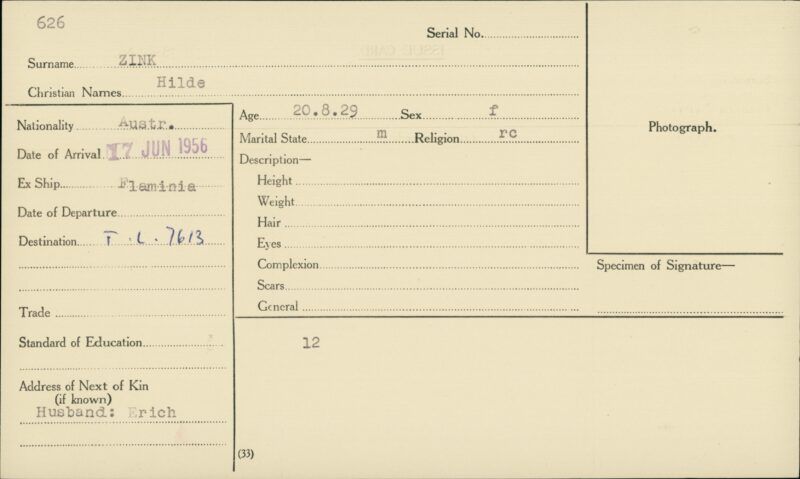 626
Serial No.
Surname ZINK
Christian Names Hilde
Nationality Austr.
Date of Arrival 17 JUN 1956
Ex Ship Flaminia
Date of Departure
Destination T.L. 7613
Trade
Standard of Education
Address of Next of Kin
(if known)
Husband: Erich
Age 20.8.29 Sex f
Marital State m Religion rc
Description—
Height
Weight
Hair
Eyes
Complexion
Scars
General
12
(33)
Photograph.
Specimen of Signature—